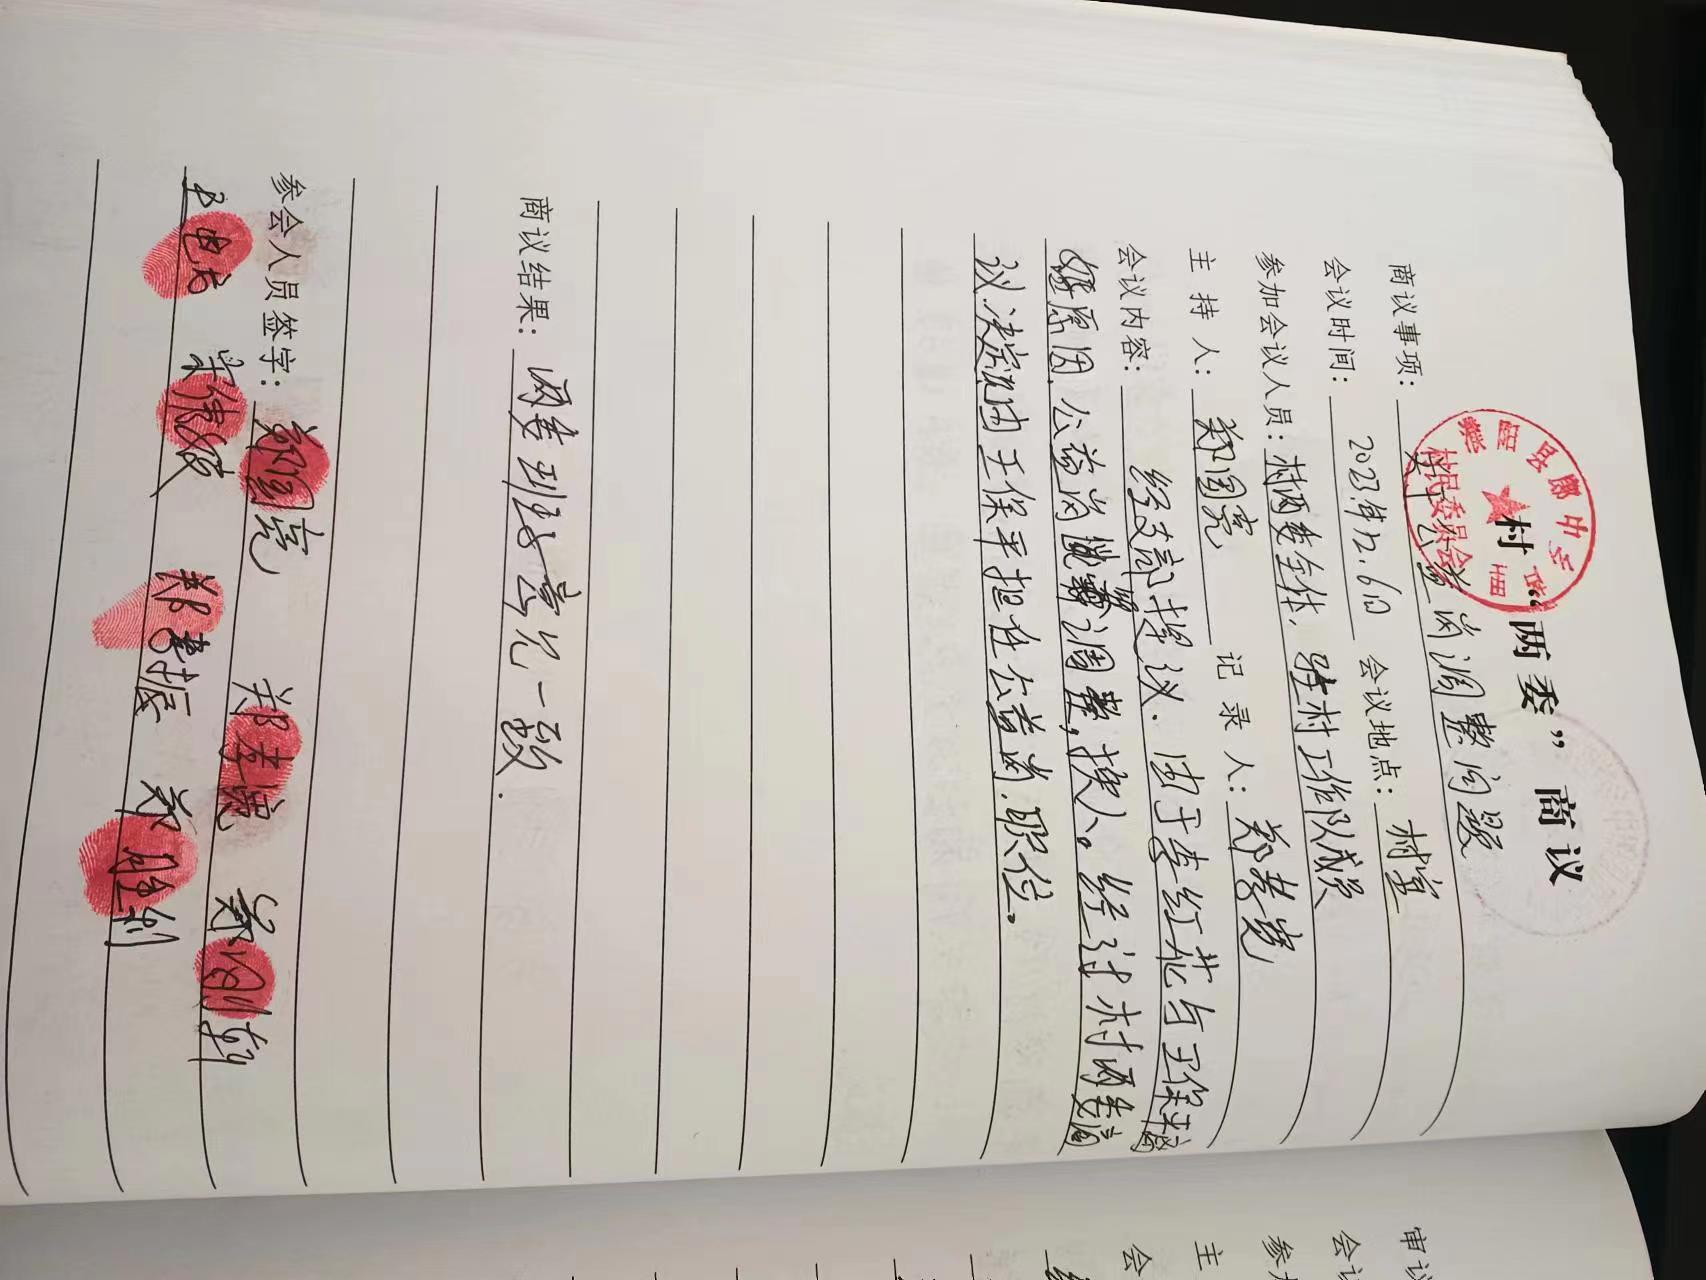 濮阳县鄄中乡肖里
村民委员会
村“两委”商议
商议事项：关于公益岗调整问题
会议时间：2023年12.6日 会议地点：村室
参加会议人员：村两委全体，驻村工作队成员
主持人：郑国亮 记录人：郑孝宽
会议内容：经支部提议．由于李红花与王保平离
婚原因，公益岗需调整，换人。经过村两委商
议．决定由王保平担任公益岗．职位。
商议结果：两委班子意见一致．
参会人员签字：郑国亮 郑孝宽 郑刚轩
王电占 宋伟娈 郑孝振 郑胜利
审议
会议
参加
主
会